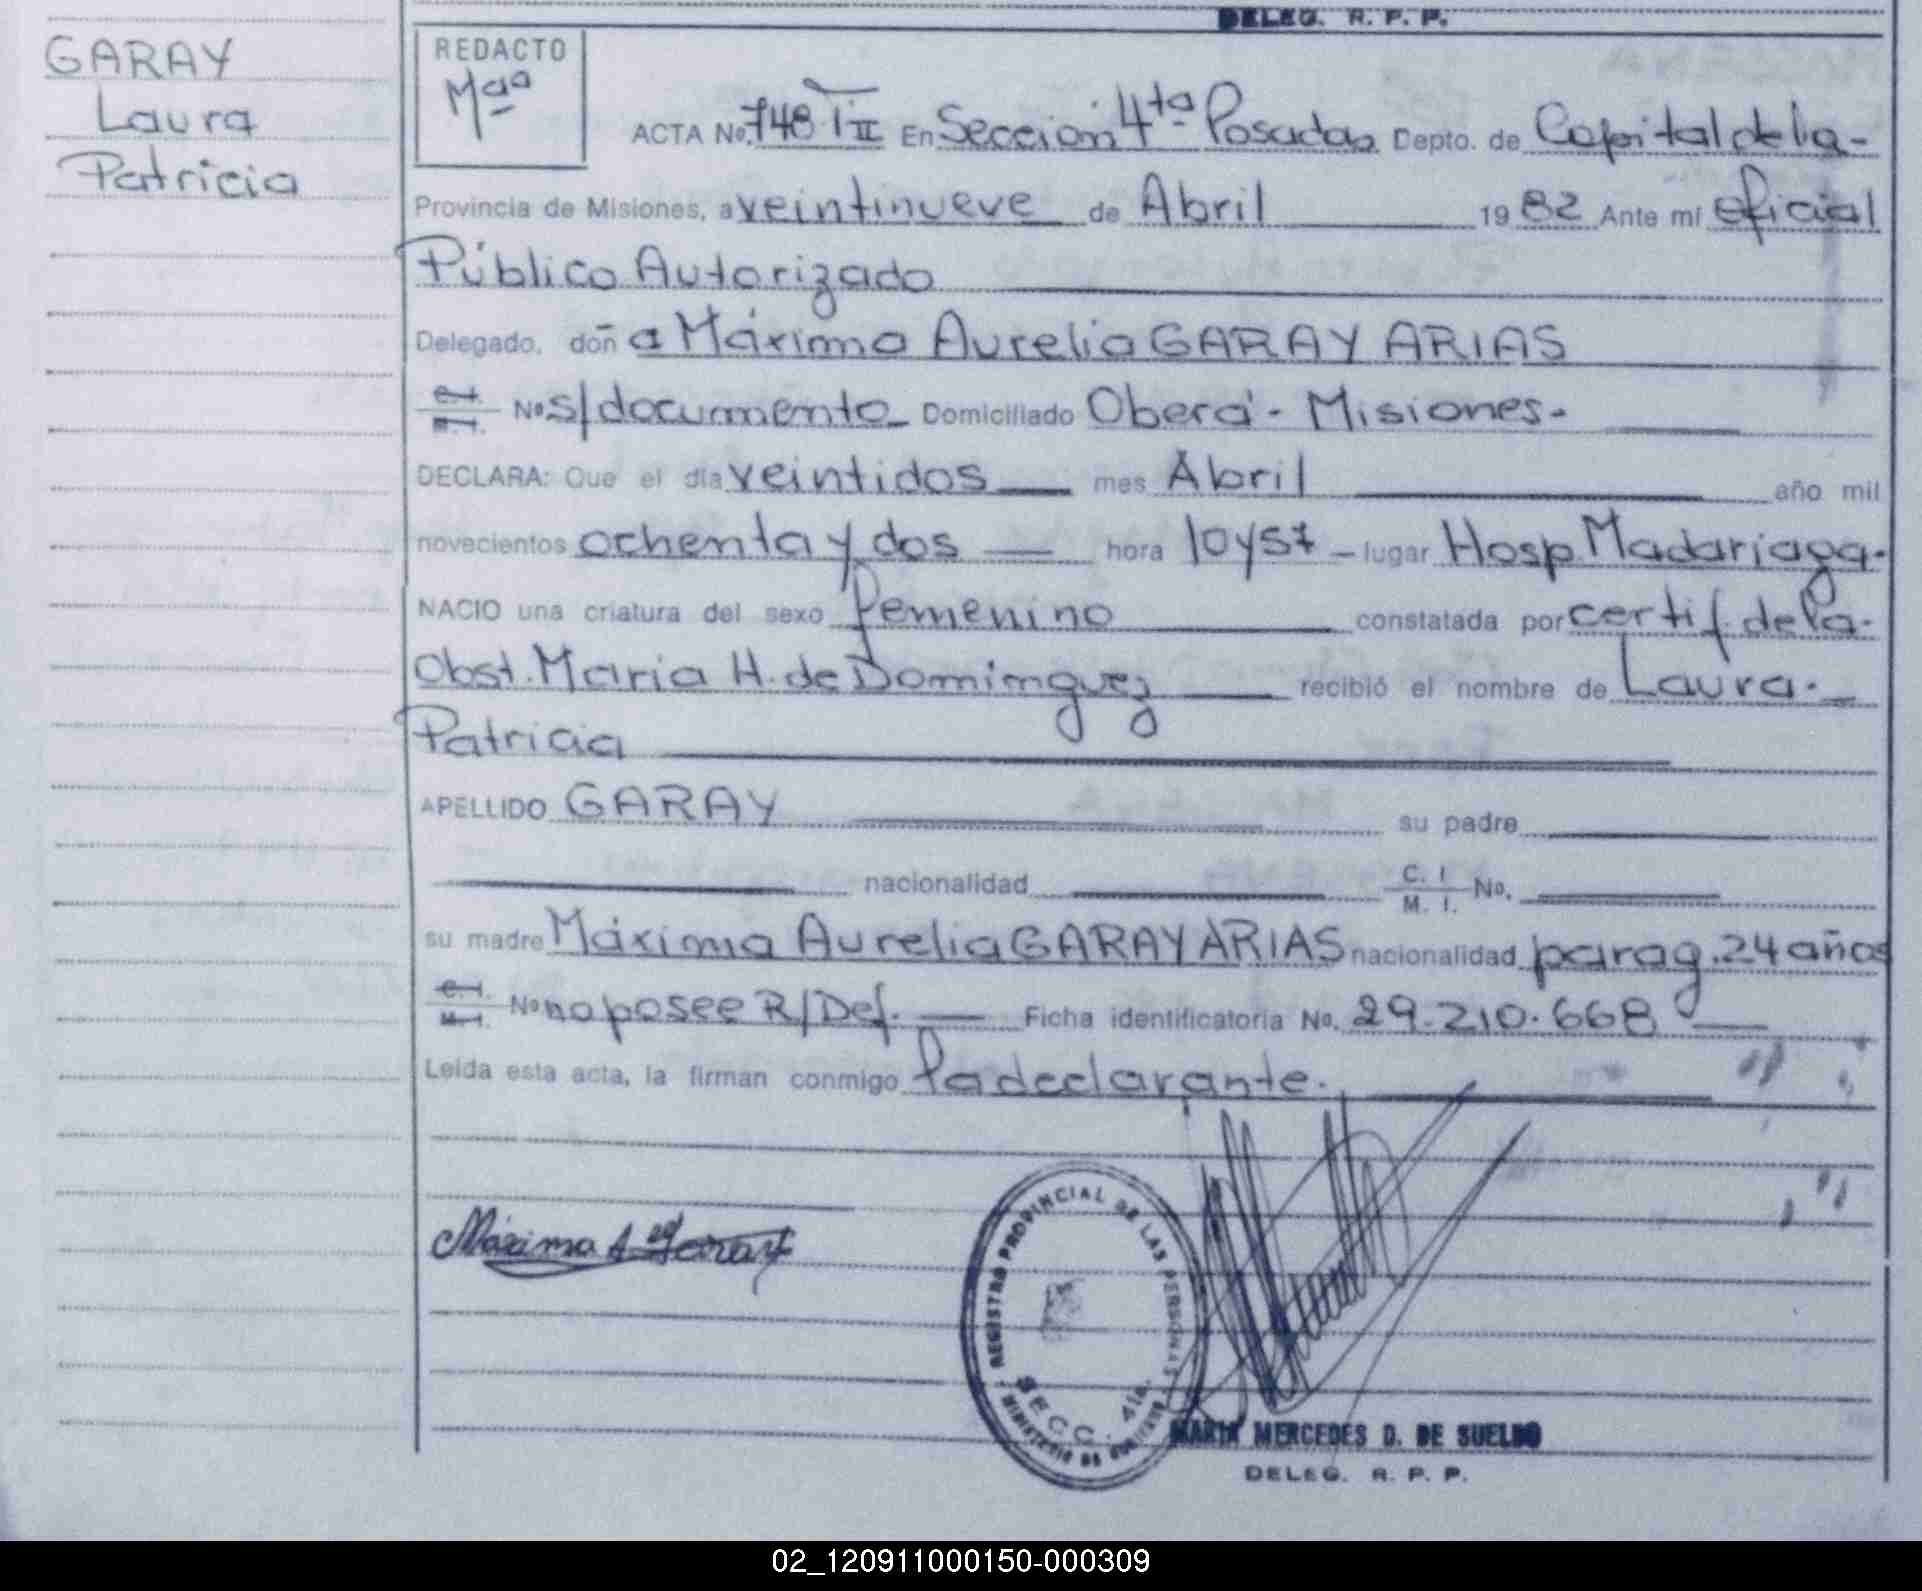 DELEG. R. P. P.
GARAY
Laura
Patricia
REDACTO
Mª
ACTA No. 748 T II En Seccion 4ta Posadas Depto. de Capital de la-
Provincia de Misiones, a veintinueve de Abril 1982 Ante mí oficial
Público Autorizado
Delegado, doña Máxima Aurelia GARAY ARIAS
C.I. M.I. No s/documento Domiciliado Oberá - Misiones-
DECLARA: Que el día veintidos mes Abril año mil
novecientos ochenta y dos hora 10 y 57 - lugar Hosp. Madariaga-
NACIO una criatura del sexo femenino constatada por certif. de la-
Obst. Maria H. de Dominguez recibió el nombre de Laura-
Patricia
APELLIDO GARAY su padre
nacionalidad C. I. M. I. No.
su madre Máxima Aurelia GARAY ARIAS nacionalidad parag. 24 años
C.I. M.I. No no posee R/Def. Ficha identificatoria No. 29.210.668
Leída esta acta, la firman conmigo la declarante.
Máxima A. Garay
REGISTRO PROVINCIAL DE LAS PERSONAS
SECC. 4ta.
MINISTERIO DE GOBIERNO
MARIA MERCEDES D. DE SUELDO
DELEG. R. P. P.
02_120911000150-000309